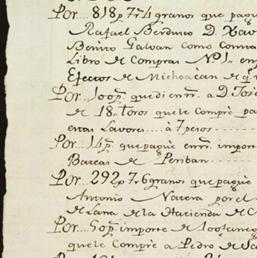 Por... 818p 7r4 granos que pagu
Rafael Berduzco D Xav
Benito Galvan como consta
Libro de Compras Nº1. en
Efectos de Michoacan de q
Por... 100p. que di enrr. a D Jose
de 18. toros que le Compre pa
estas Lavores... à 7 pesos
Por... 14p. que pague enrr. import
Barcas de Periban
Por... 292p 7r6 granos que pague
Antonio Narera por el
de Lana de la Hacienda de C
Por... 50p importe de
que le Compre a Pedro de Sa
Por